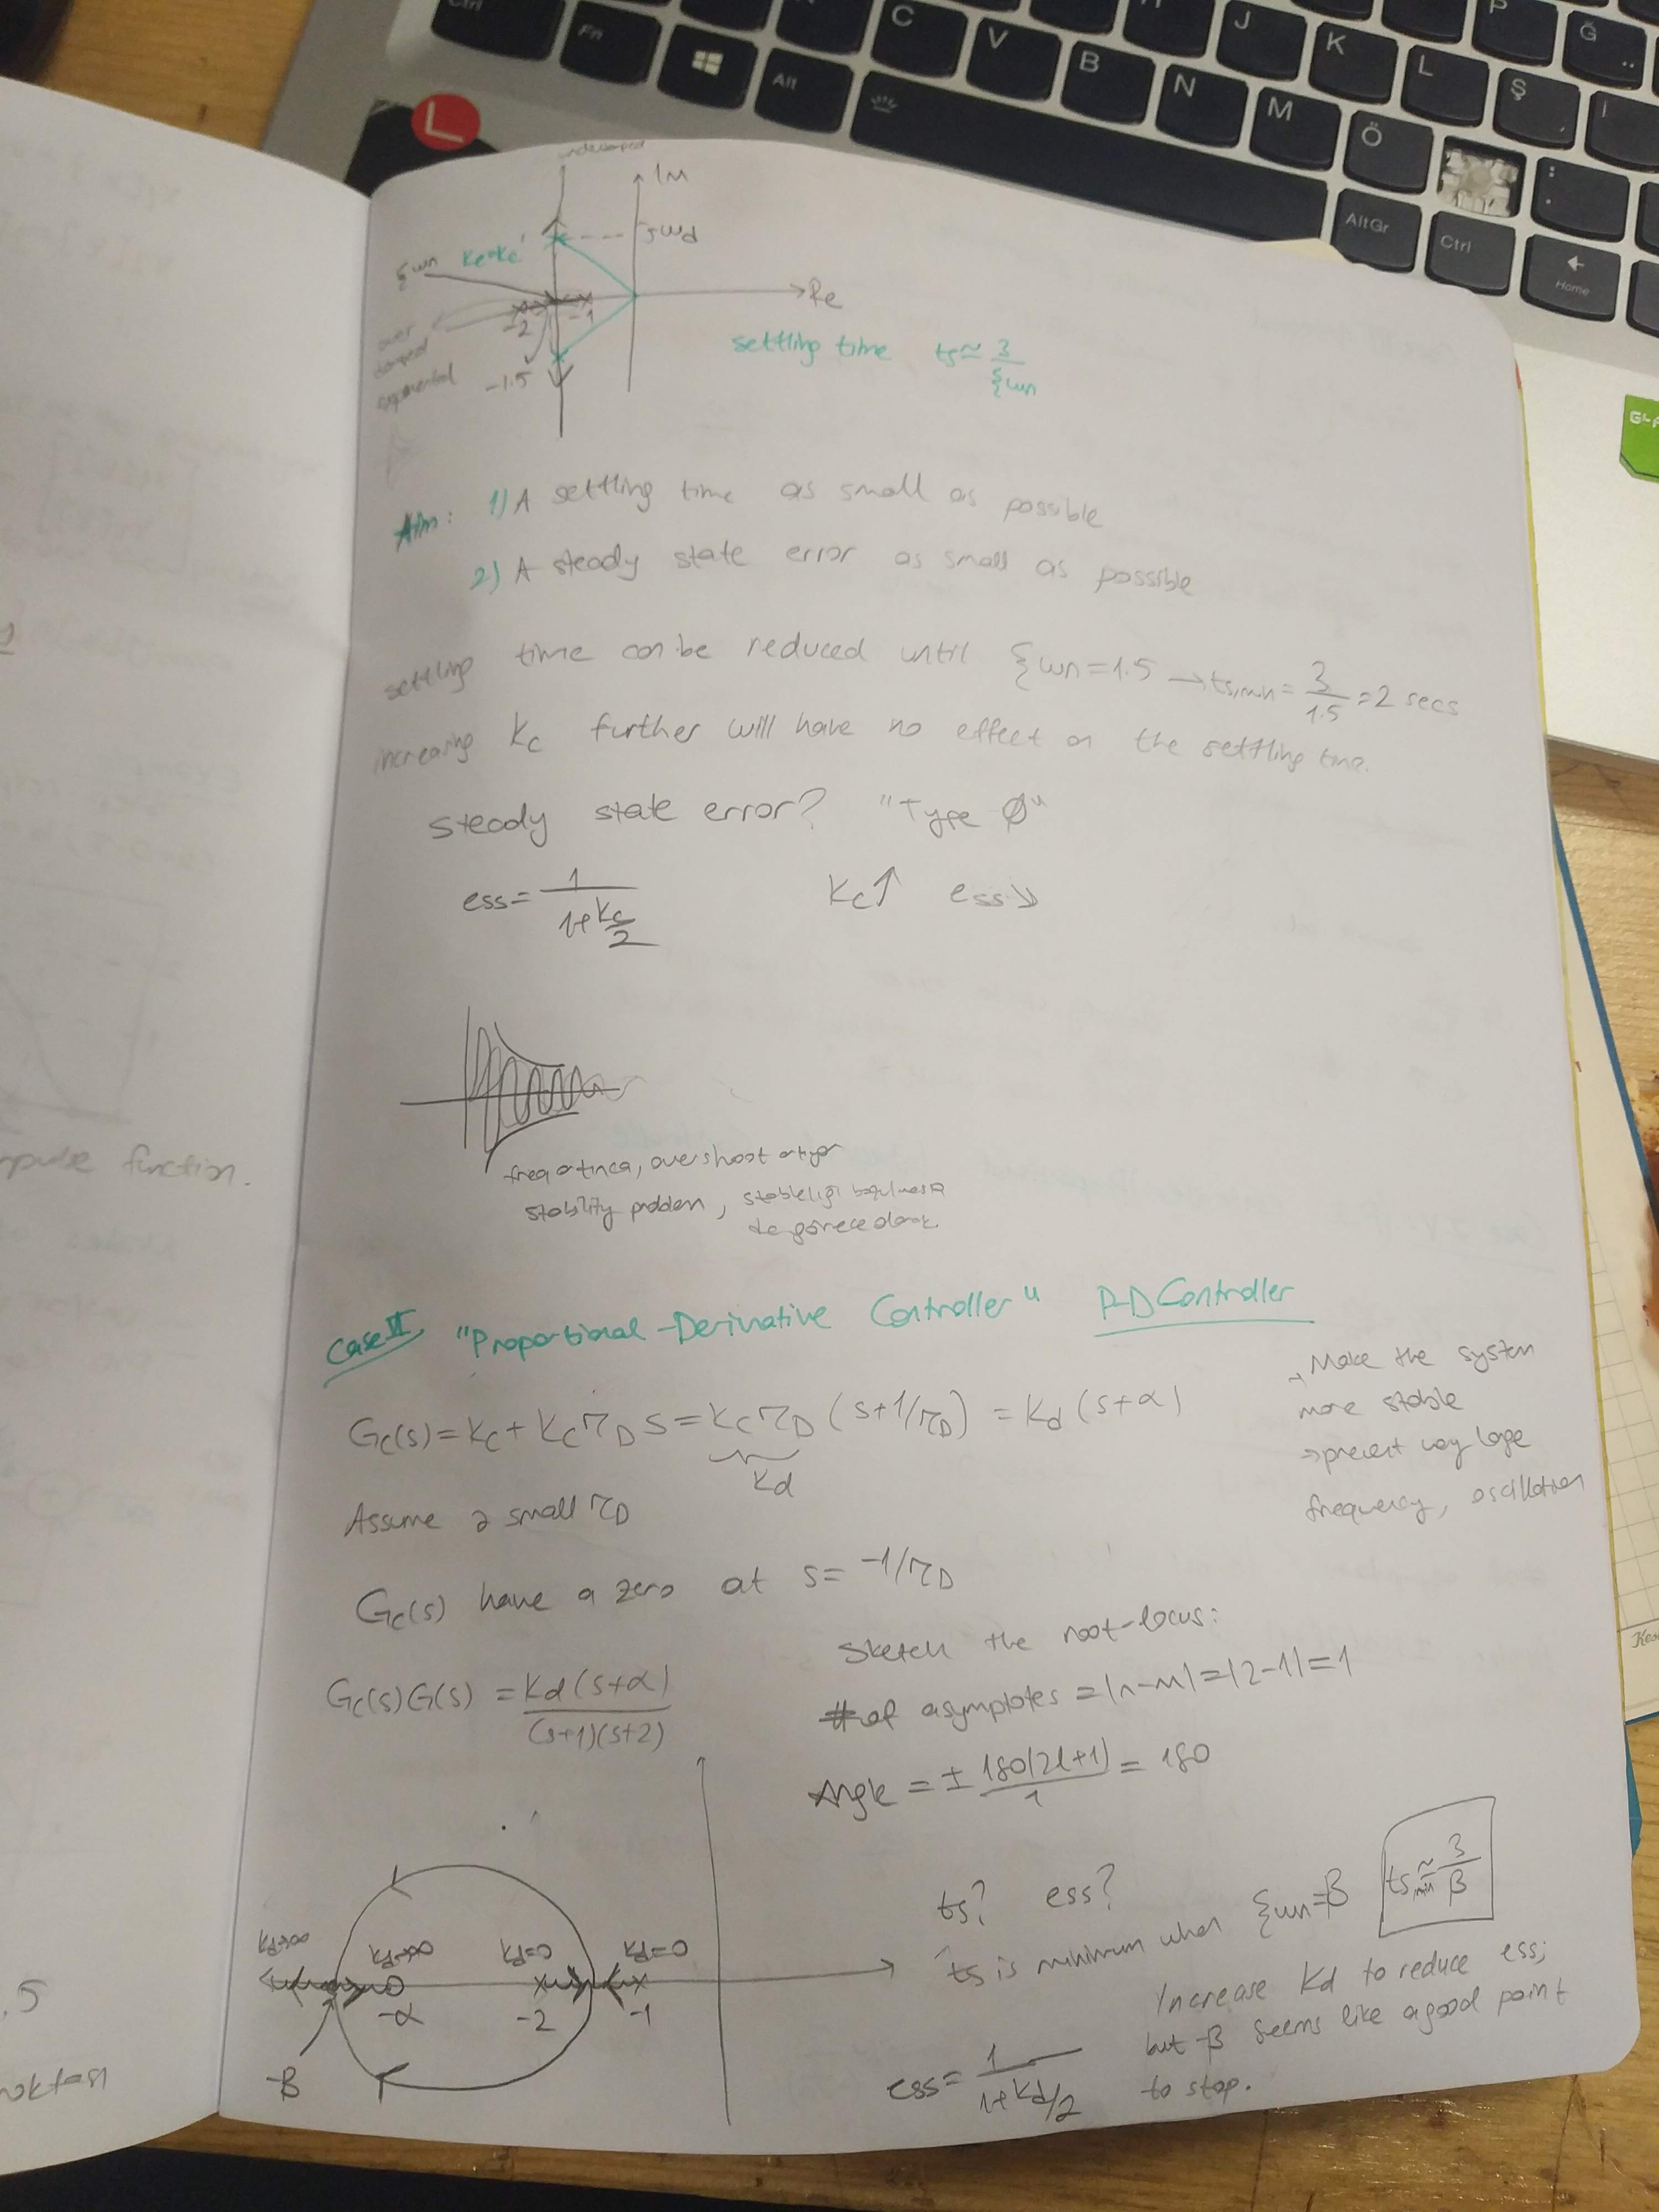 Ctrl
Fn
Alt
C
V
B
N
M
H
J
K
L
Ö
Ş
İ
P
Ğ
AltGr
Ctrl
Home
L
underdamped
Im
jwd
ξwn
Kc=Kc'
-2
-1
Re
over
damped
exponential
-1.5
settling time ts≃ 3/ξwn
Aim: 1) A settling time as small as possible
2) A steady state error as small as possible
settling time can be reduced until ξwn=1.5 → ts,min = 3/1.5 = 2 secs
increasing Kc further will have no effect on the settling time.
steady state error? "Type Ø"
ess= 1/(1+Kc/2) Kc↑ ess↓
freq artınca, overshoot artıyor
stability problem, stabilliği bozulmasa
da görece olarak
Case II "Proportional-Derivative Controller" P-D Controller
Gc(s)=Kc+KcτD s=KcτD (s+1/τD) = Kd (s+α)
Kd
→ Make the system
more stable
→ prevent very large
frequency, oscillation
Assume a small τD
Gc(s) have a zero at s= -1/τD
Gc(s)G(s) = Kd(s+α)/((s+1)(s+2))
Sketch the root-locus:
# of asymptotes = |n-m|=|2-1|=1
Angle = ± 180(2l+1)/1 = 180
Kd→∞
Kd→∞
Kd=0
Kd=0
-α
-2
-1
-β
ts? ess?
ts is minimum when ξwn=β ts,min ≃ 3/β
ess= 1/(1+Kd/2)
Increase Kd to reduce ess;
but -β seems like a good point
to stop.
pulse function.
.5